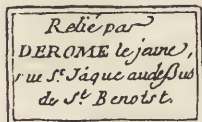 Relié par
DEROME le jeune,
rue St. Jâque audeſſus
de St. Benoist.